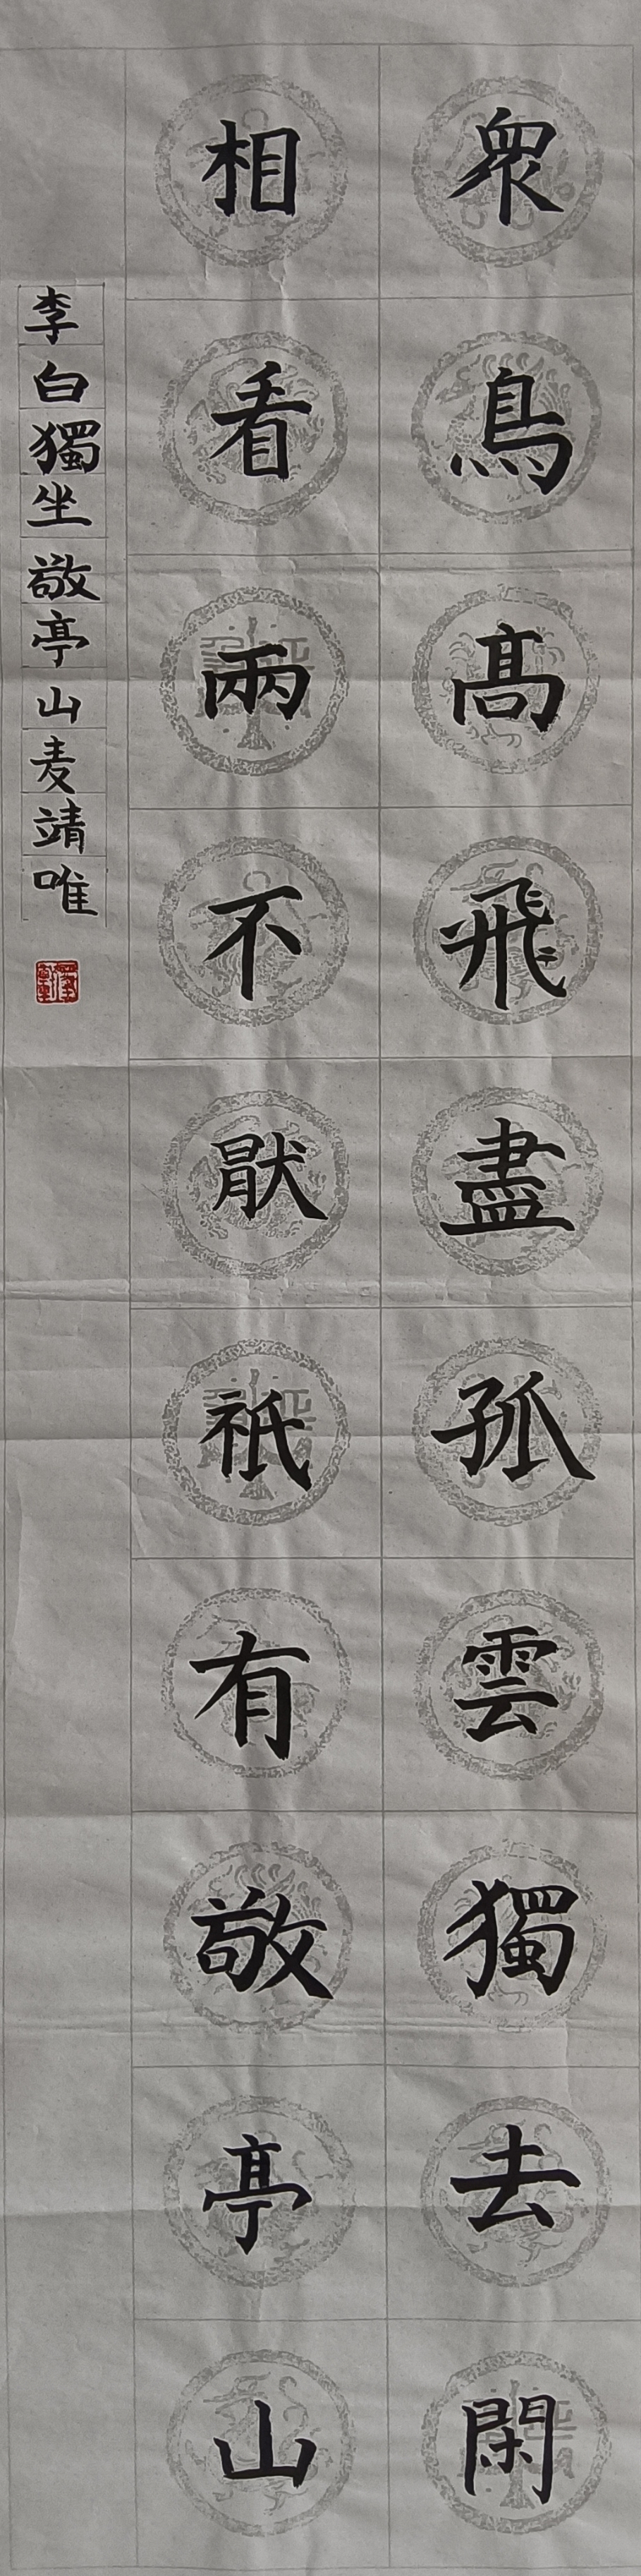 眾鳥高飛盡孤雲獨去閑
相看兩不猒祇有敬亭山
李白獨坐敬亭山麦靖唯